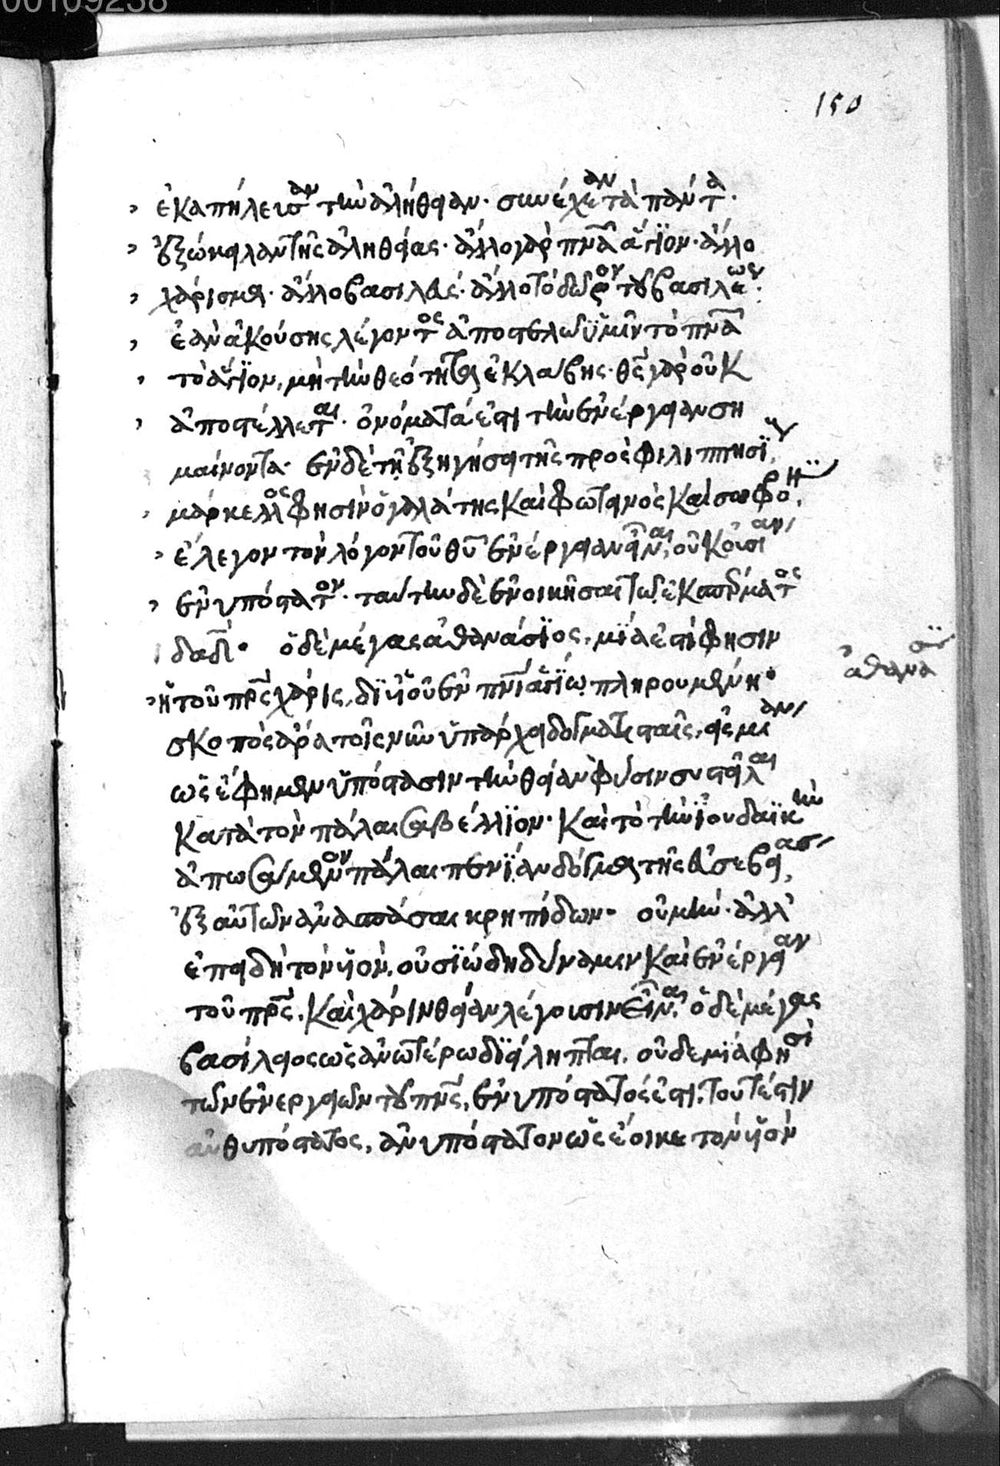 00109238
150
ἐκαπήλευσαν τὴν ἀλήθειαν. συνέχεαν τὰ πάντα.
ἐξώκειλαν τῆς ἀληθείας. ἄλλο γὰρ πνα ἅγϊον. ἄλλο
χάρισμα. ἄλλο βασιλεὺς. ἄλλο τὸ δῶρον τοῦ βασιλέως.
ἐὰν ἀκούσῃς λέγοντος ἀποστελῶ ὑμῖν τὸ πνα
τὸ ἅγϊον, μὴ τὴν θεότητα ἐκλάβῃς. θς γὰρ οὐκ
ἀποστέλλεται. ὀνόματά ἐστι τὴν ἐνέργειαν ση
μαίνοντα. ἐν δὲ τῇ ἐξηγήσει τῆς πρὸς φιλιππησΐους
μάρκελλος φησὶν ὁ γαλάτης καὶ φωτεινὸς καὶ σωφρό
ἔλεγον τὸν λόγον τοῦ θυ ἐνέργειαν εἶναι, οὐκ οὐσίαν
ἐνυπόστατον. ταύτην δὲ ἐνοικῆσαι τῶ ἐκ σπέρματος
δαδ. ὁ δὲ μέγας ἀθανάσϊος, μΐα ἐστί φησιν
ἀθανασΐ
ἡ τοῦ πρς χάρις, δϊ υἱοῦ ἐν πνι ἁγΐω πληρουμένη.
σκοπὸς ἄρα τοῖς νῦν ὑπάρχει δογματισταῖς, εἰς μίαν
ὡς ἔφημεν ὑπόστασιν τὴν θείαν φύσιν συστεῖλαι
κατὰ τὸν πάλαι σαβέλλϊον. καὶ τὸ τὴν ἰουδαϊκὴν
ἀπωσάμενον πάλαι πενΐαν δόγμα τῆς εὐσεβείας,
ἐξ αὐτῶν ἀνασπάσαι κρηπίδων. οὐ μὴν. ἀλλ'
ἐπειδὴ τὸν υἱὸν, οὐσϊώδη δύναμιν καὶ ἐνέργειαν
τοῦ πρς, καὶ χάριν θείαν λέγουσιν εἶναι, ὁ δὲ μέγας
βασίλειος ὡς ἀνωτέρω δϊείληπται, οὐδεμΐα φησὶ
τῶν ἐνεργειῶν τοῦ πνς, ἐνυπόστατός ἐστι, τουτέστιν
αὐθυπόστατος, ἀνυπόστατον ὡς ἔοικε τὸν υἱὸν